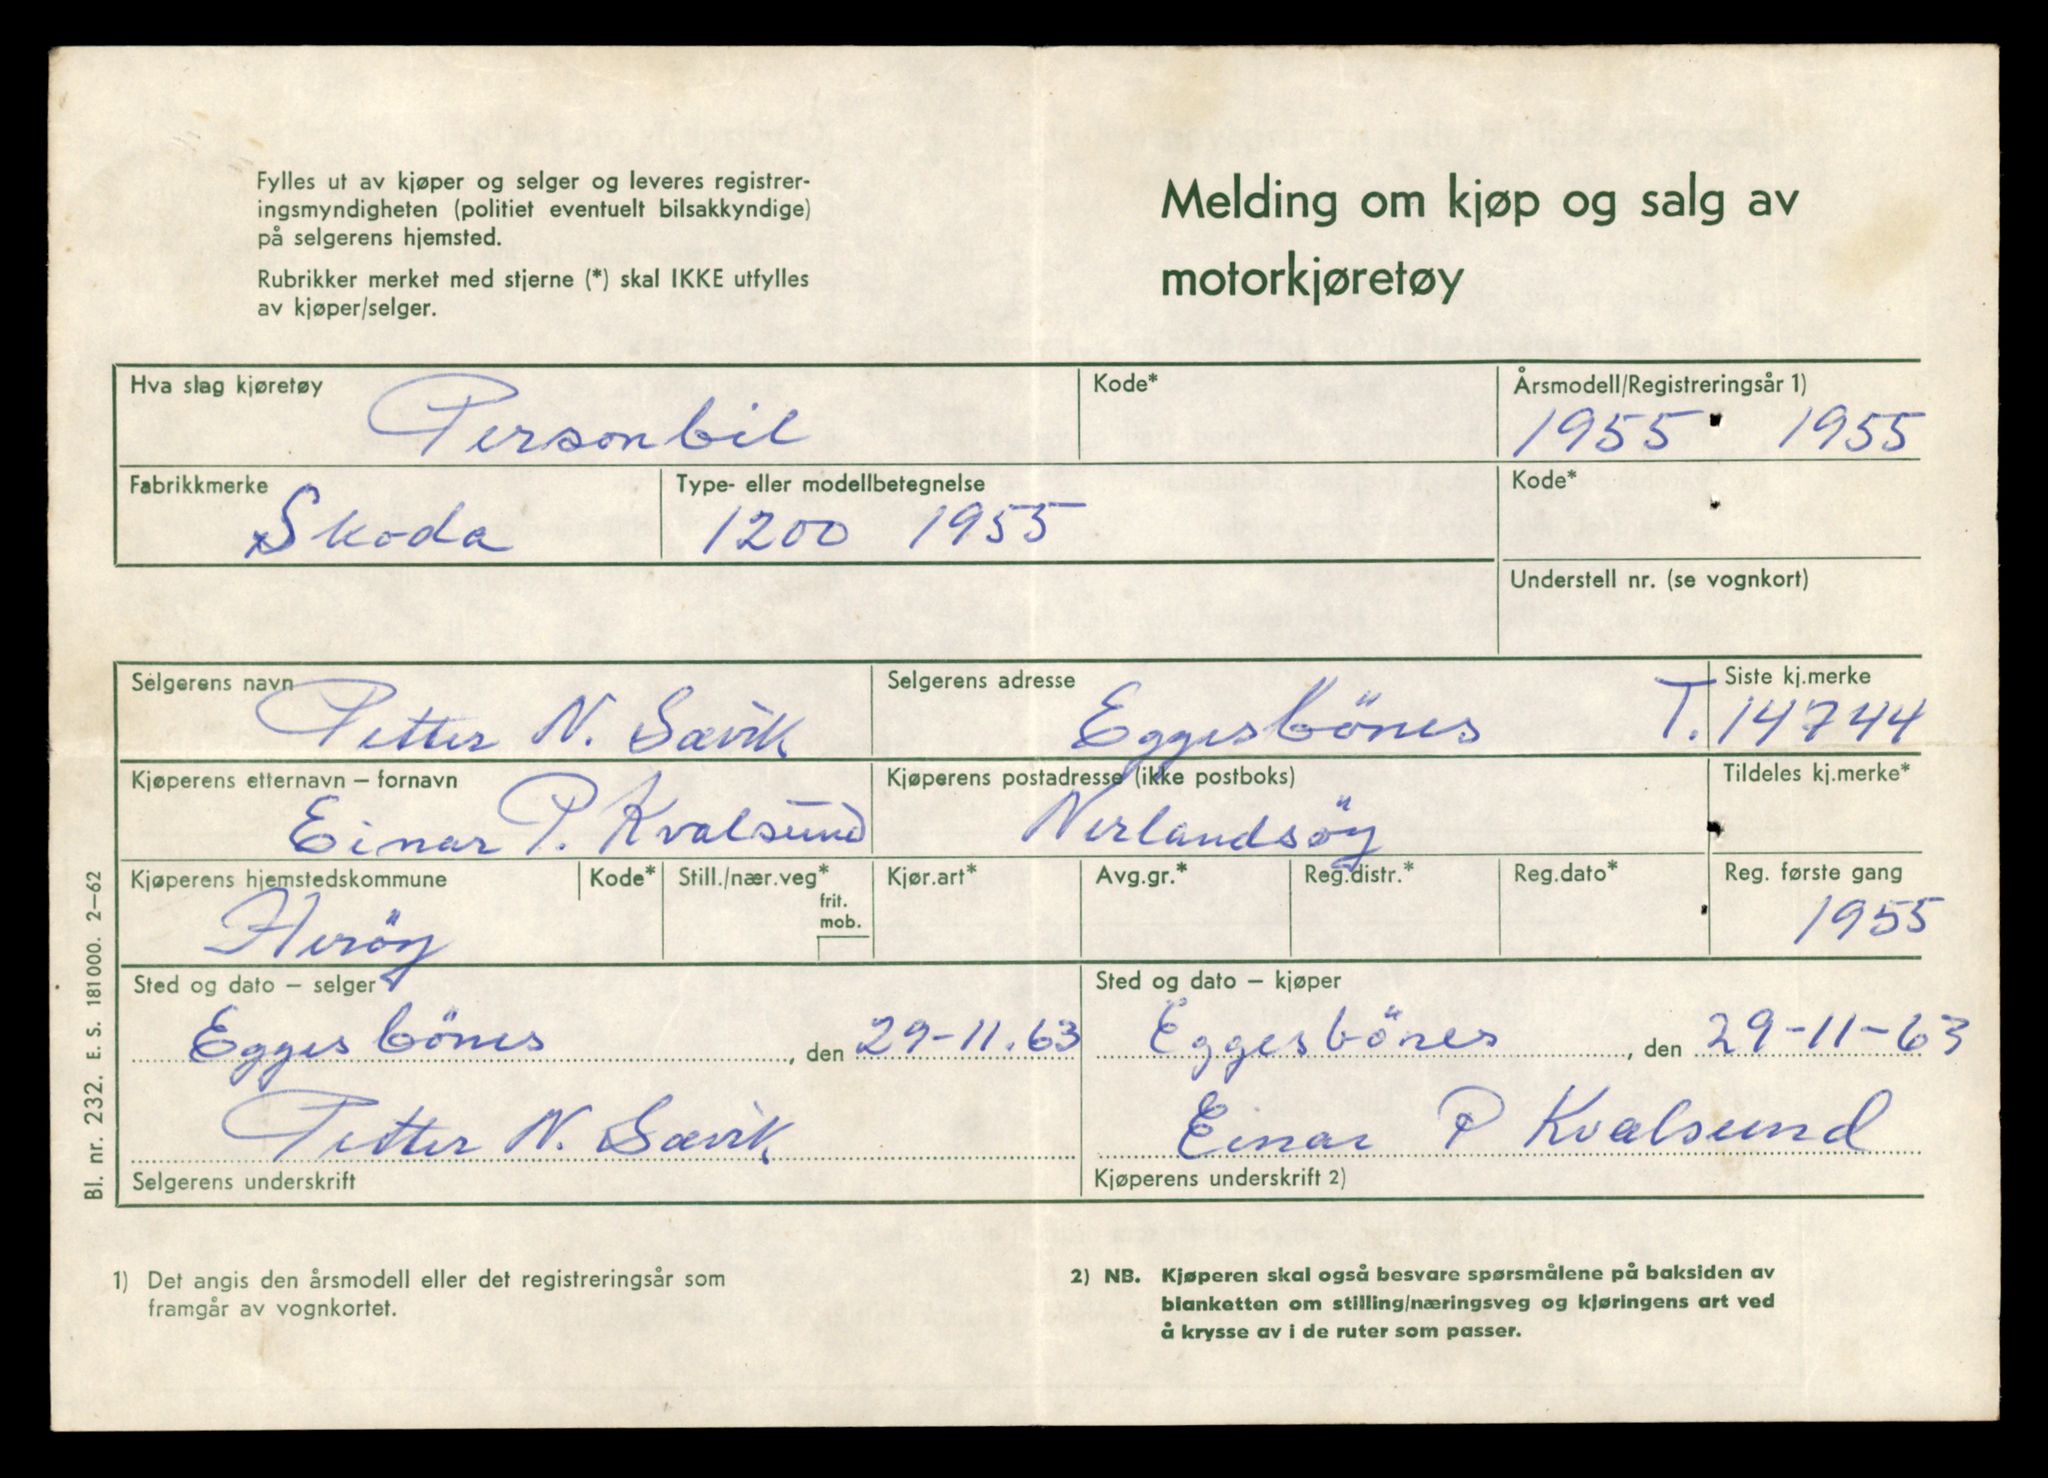 Fylles ut av kjøper og selger og leveres registrer-
ingsmyndigheten (politiet eventuelt bilsakkyndige)
på selgerens hjemsted.
Rubrikker merket med stjerne (*) skal IKKE utfylles
av kjøper/selger.
Melding om kjøp og salg av
motorkjøretøy
Hva slag kjøretøy
Personbil
Kode*
Årsmodell/Registreringsår 1)
1955 1955
Fabrikkmerke
Skoda
Type- eller modellbetegnelse
1200 1955
Kode*
Understell nr. (se vognkort)
Selgerens navn
Petter N. Sævik
Selgerens adresse
Eggesbönes
Siste kj.merke
T. 14744
Kjøperens etternavn – fornavn
Einar P. Kvalsund
Kjøperens postadresse (ikke postboks)
Nerlandsöy
Tildeles kj.merke*
Kjøperens hjemstedskommune
Heröy
Kode*
Still./nær.veg*
frit.
mob.
Kjør.art*
Avg.gr.*
Reg.distr.*
Reg.dato*
Reg. første gang
1955
Sted og dato – selger
Eggesbönes, den 29-11.63
Petter N. Sævik
Selgerens underskrift
Sted og dato – kjøper
Eggesbönes, den 29-11-63
Einar P Kvalsund
Kjøperens underskrift 2)
Bl. nr. 232. E. S. 181 000. 2–62
1) Det angis den årsmodell eller det registreringsår som
framgår av vognkortet.
2) NB. Kjøperen skal også besvare spørsmålene på baksiden av
blanketten om stilling/næringsveg og kjøringens art ved
å krysse av i de ruter som passer.